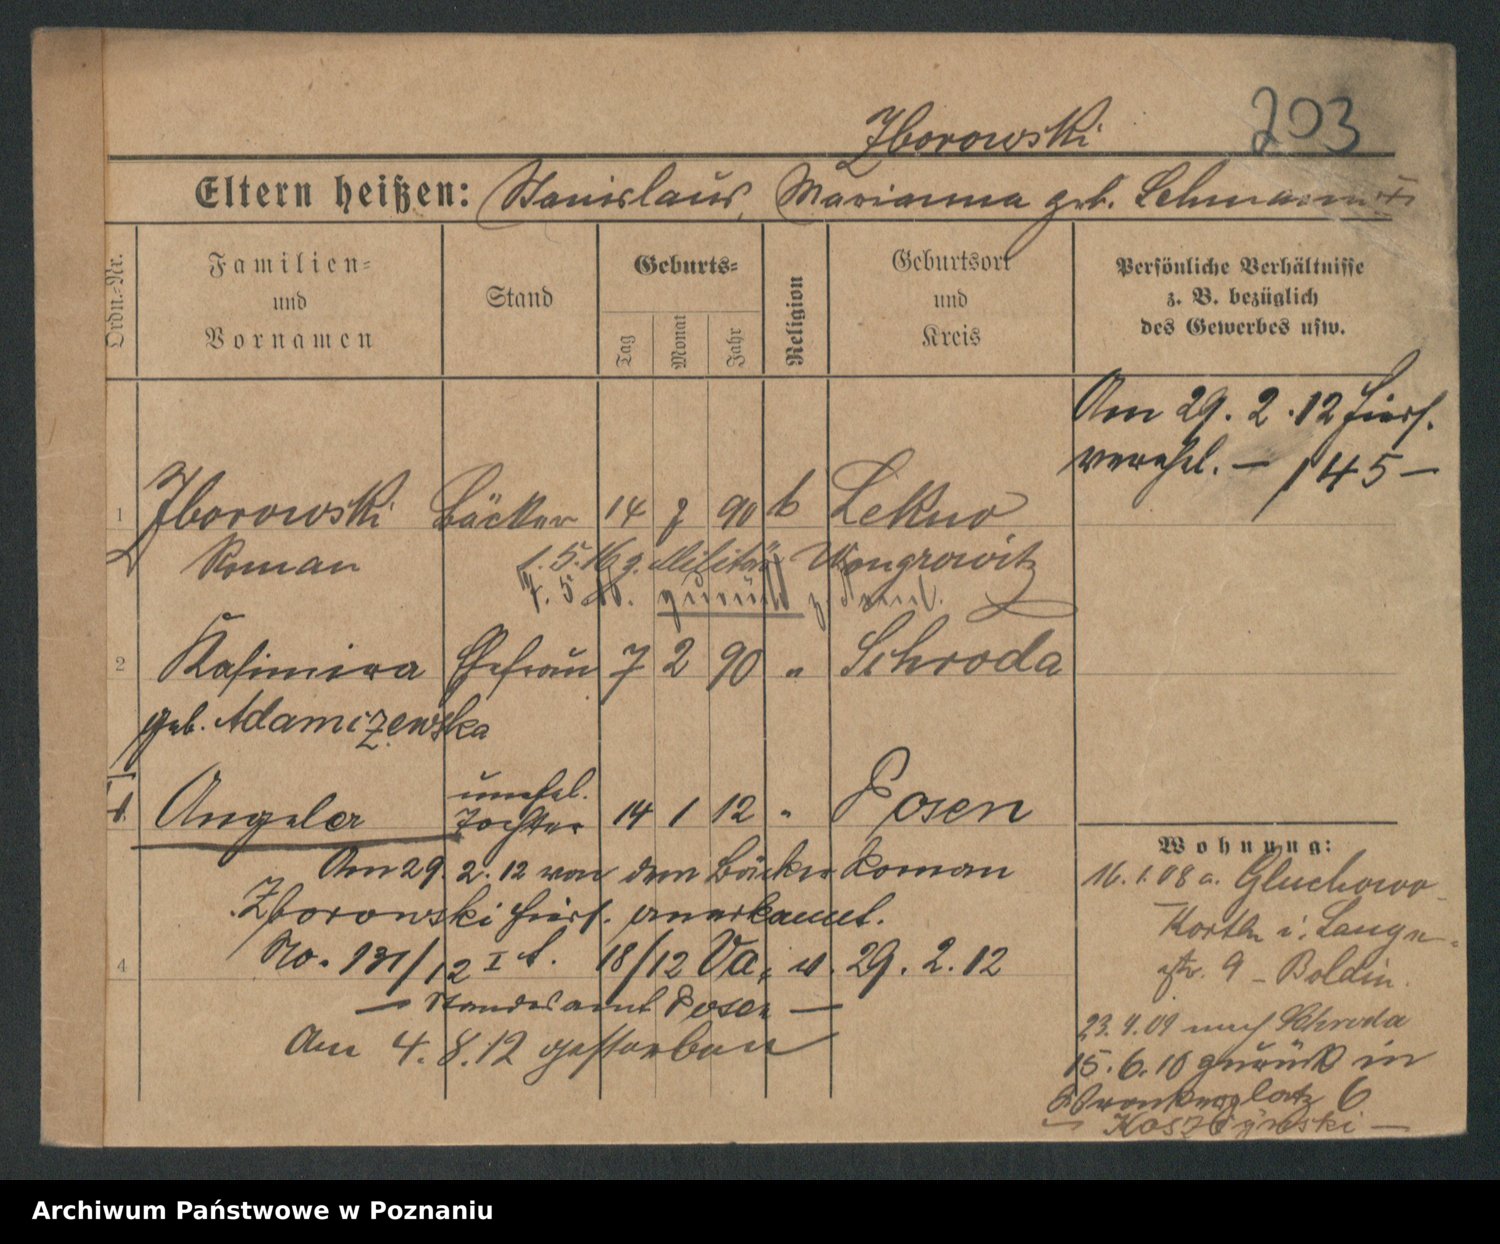 Zborowski 203
Eltern heißen: Stanislaus, Marianna geb. Lehmann
Ordn.-Nr.
Familien-
und
Vornamen
Stand
Geburts-
Tag
Monat
Jahr
Religion
Geburtsort
und
Kreis
Persönliche Verhältnisse
z. B. bezüglich
des Gewerbes usw.
Am 29. 2. 12 hiers.
verehel. — 145 —
1 Zborowski Bäcker 14 7 90 k Lekno
Roman 1. 5. 16 z. Militär Wongrowitz
7. 5. 16. zurück z.
2 Kasimira Ehefrau 7 2 90 " Schroda
geb. Adamczewska
Angela unehel. Tochter 14 1 12 " Posen
Am 29. 2. 12 von dem Bäcker Roman
Zborowski hiers. anerkannt.
No. 131/12 I t. 18/12 Va, v. 29. 2. 12
4
— Standesamt Posen —
Am 4. 8. 12 gestorben
Wohnung:
16. 1. 08 a. Gluchowo
i. Lange-
str. 9 - Boldin.
23. 9. 09 nach Schroda
15. 6. 10 zurück in
Wronkerplatz 6
— Koszczynski —
Archiwum Państwowe w Poznaniu